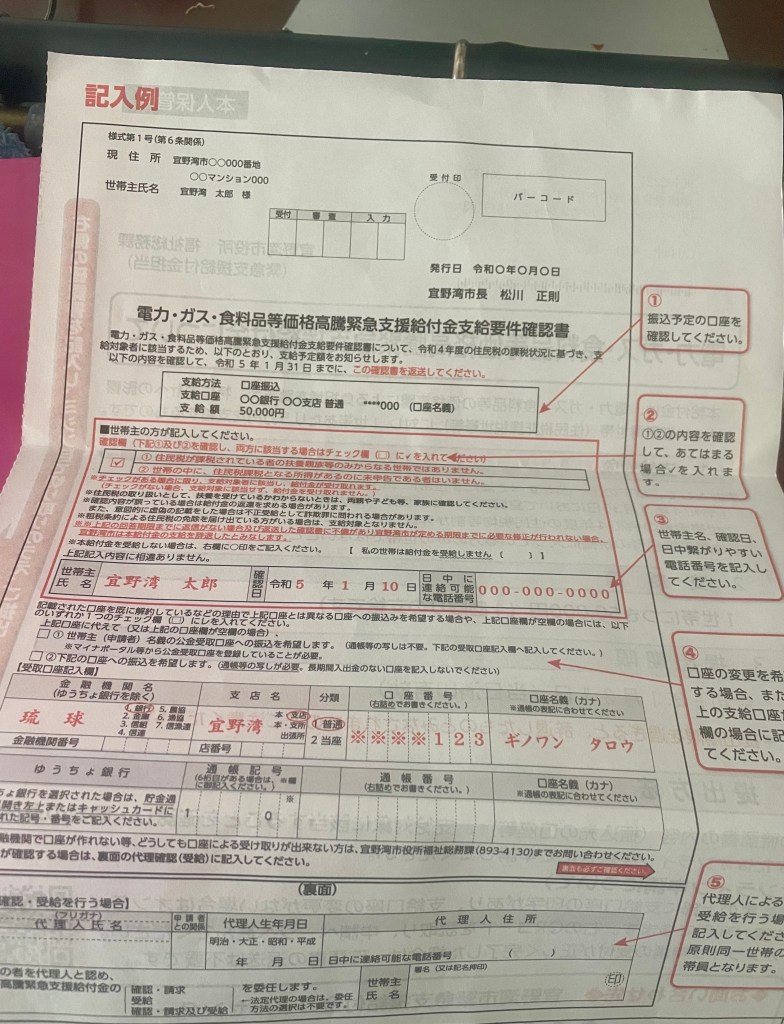 記入例
様式第1号(第6条関係)
現住所 宜野湾市○○000番地
○○マンション000
世帯主氏名 宜野湾 太郎 様
受付印
バーコード
受付 審査 入力
発行日 令和○年○月○日
宜野湾市長 松川 正則
電力・ガス・食料品等価格高騰緊急支援給付金支給要件確認書
電力・ガス・食料品等価格高騰緊急支援給付金支給要件確認書について、令和4年度の住民税の課税状況に基づき、支
給対象者に該当するため、以下のとおり、支給予定額をお知らせします。
以下の内容を確認して、令和5年1月31日までに、この確認書を返送してください。
支給方法 口座振込
支給口座 ○○銀行 ○○支店 普通 ****000 (口座名義)
支給額 50,000円
①
振込予定の口座を
確認してください。
■世帯主の方が記入してください。
確認欄(下記①及び②を確認し、両方に該当する場合はチェック欄(□)に✓を入れてください)
☑ ① 住民税が課税されている者の扶養親族等のみからなる世帯ではありません。
② 世帯の中に、住民税課税となる所得があるのに未申告である者はいません。
※チェックがある場合に限り、支給対象者に該当し、給付金が受け取れます。
(チェックがない場合、支給対象に該当せず、給付金を受け取れません。)
※住民税の取り扱いとして、扶養を受けているかわからないときは、両親や子ども等、家族に確認してください。
※確認内容が誤っている場合は給付金の返還を求める場合があります。
また、意図的に虚偽の記載をした場合は不正受給として詐欺罪に問われる場合があります。
※租税条約による住民税の免除を届け出ている方がいる場合は、支給対象となりません。
※※上記の回答期限までに返信がない場合及び返送した確認書に不備があり宜野湾市が定める期限までに必要な修正が行われない場合、
宜野湾市は本給付金の支給を辞退したとみなします。
※本給付金を受給しない場合は、右欄に○印をご記入ください。 【 私の世帯は給付金を受給しません ( ) 】
上記記入内容に相違ありません。
世帯主氏名 宜野湾 太郎 確認日 令和5年1月10日 日中に連絡可能な電話番号 000-000-0000
②
①②の内容を確認
して、あてはまる
場合✓を入れま
す。
③
世帯主名、確認日、
日中繋がりやすい
電話番号を記入し
てください。
記載された口座を既に解約しているなどの理由で上記口座とは異なる口座への振込みを希望する場合や、上記口座欄が空欄の場合には、以下
のいずれか1つのチェック欄(□)に✓を入れてください。
上記口座に代えて(又は上記の口座欄が空欄の場合)、
□①世帯主(申請者)名義の公金受取口座への振込を希望します。(通帳等の写しは不要。下記の受取口座記入欄へ記入してください。)
※マイナポータル等から公金受取口座を登録していることが必要。
□②下記の口座への振込を希望します。(通帳等の写しが必要。長期間入出金のない口座を記入しないでください)
【受取口座記入欄】
金融機関名
(ゆうちょ銀行を除く)
支店名
分類
口座番号
(右詰めでお書きください。)
口座名義(カナ)
※通帳の表記に合わせてください。
琉球
1.銀行 5.農協
2.金庫 6.漁協
3.信組 7.信漁連
4.信連
宜野湾
本・支店
本・支所
出張所
1 普通
2 当座
※※※※123
ギノワン タロウ
金融機関番号
店番号
④
口座の変更を希
する場合、また
上の支給口座
欄の場合に記
てください。
ゆうちょ銀行
通帳記号
(6桁目がある場合は、※欄
に御記入ください。)
通帳番号
(右詰めでお書きください。)
口座名義(カナ)
※通帳の表記に合わせてください
ちょ銀行を選択された場合は、貯金通
開き左上またはキャッシュカードに
れた記号・番号をご記入ください。
1 0 ※
融機関で口座が作れない等、どうしても口座による受け取りが出来ない方は、宜野湾市役所福祉総務課(893-4130)までお問い合わせください。
が確認する場合は、裏面の代理確認(受給)に記入してください。
裏面も必ずご確認ください。
(裏面)
確認・受給を行う場合】
(フリガナ)
代理人氏名
申請者
との関係
代理人生年月日
代理人住所
明治・大正・昭和・平成
年 月 日
日中に連絡可能な電話番号 ( )
の者を代理人と認め、
高騰緊急支援給付金の
確認・請求
受給
確認・請求及び受給
を委任します。
←法定代理の場合は、委任
方法の選択は不要です。
世帯主
氏名
署名(又は記名押印)
印
⑤
代理人による
受給を行う場
記入してくださ
原則同一世帯の
帯員となります。